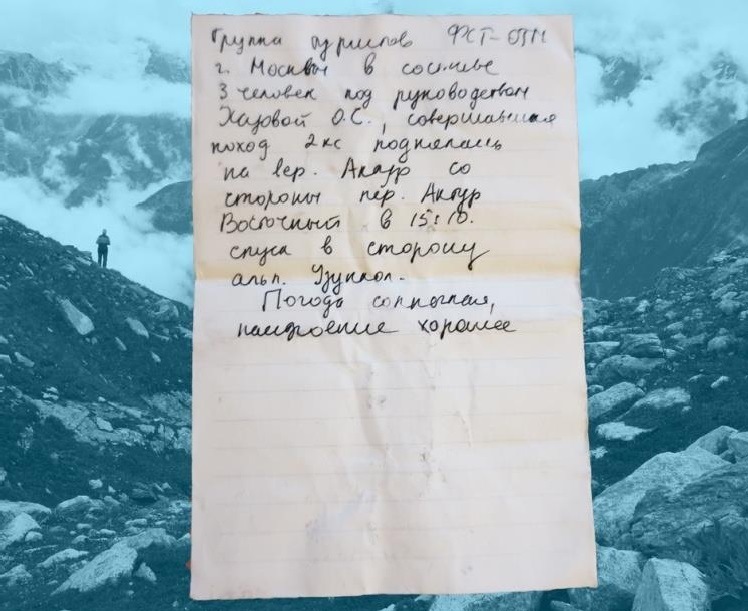 Группа туристов ФСТ-ОТМ
г. Москвы в составе
3 человек под руководством
Хазовой О.С., совершавшая
поход 2кс поднялась
на вер. Актур со
стороны пер. Актур
Восточный в 15:10.
спуск в сторону
альп. Узункол.
Погода солнечная,
настроение хорошее